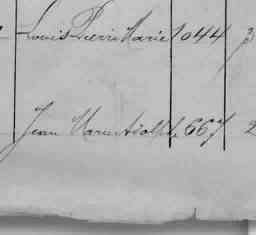 Louis Pierre Marie 1044
Jean Marie Adolphe 667 2